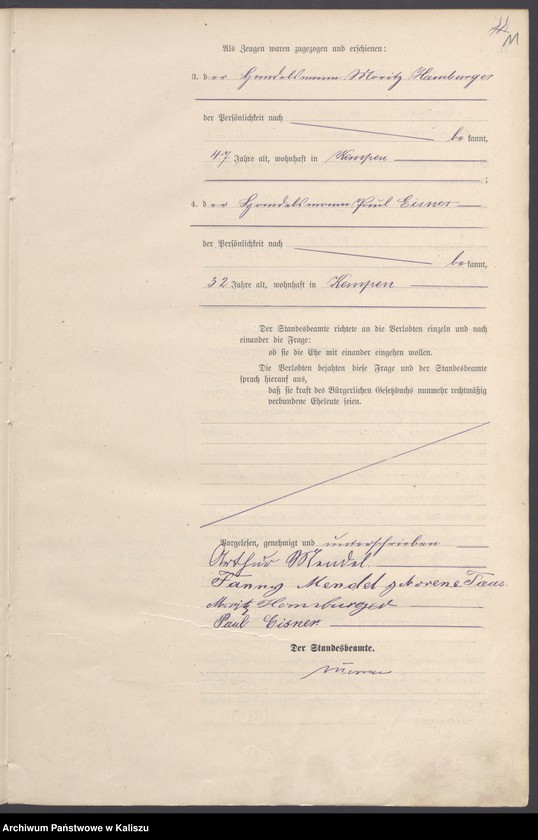 11
Als Zeugen waren zugezogen und erschienen:
3. der Handelsmann Moritz Hamburger
der Persönlichkeit nach
be kannt,
47 Jahre alt, wohnhaft in Kempen
;
4. der Handelsmann Paul Eisner
der Persönlichkeit nach
be kannt,
32 Jahre alt, wohnhaft in Kempen
Der Standesbeamte richtete an die Verlobten einzeln und nach
einander die Frage:
ob sie die Ehe mit einander eingehen wollen.
Die Verlobten bejahten diese Frage und der Standesbeamte
sprach hierauf aus,
daß sie kraft des Bürgerlichen Gesetzbuchs nunmehr rechtmäßig
verbundene Eheleute seien.
Vorgelesen, genehmigt und unterschrieben
Arthur Mendel
Fanny Mendel geborene Taus
Moritz Hamburger
Paul Eisner
Der Standesbeamte.
Archiwum Państwowe w Kaliszu